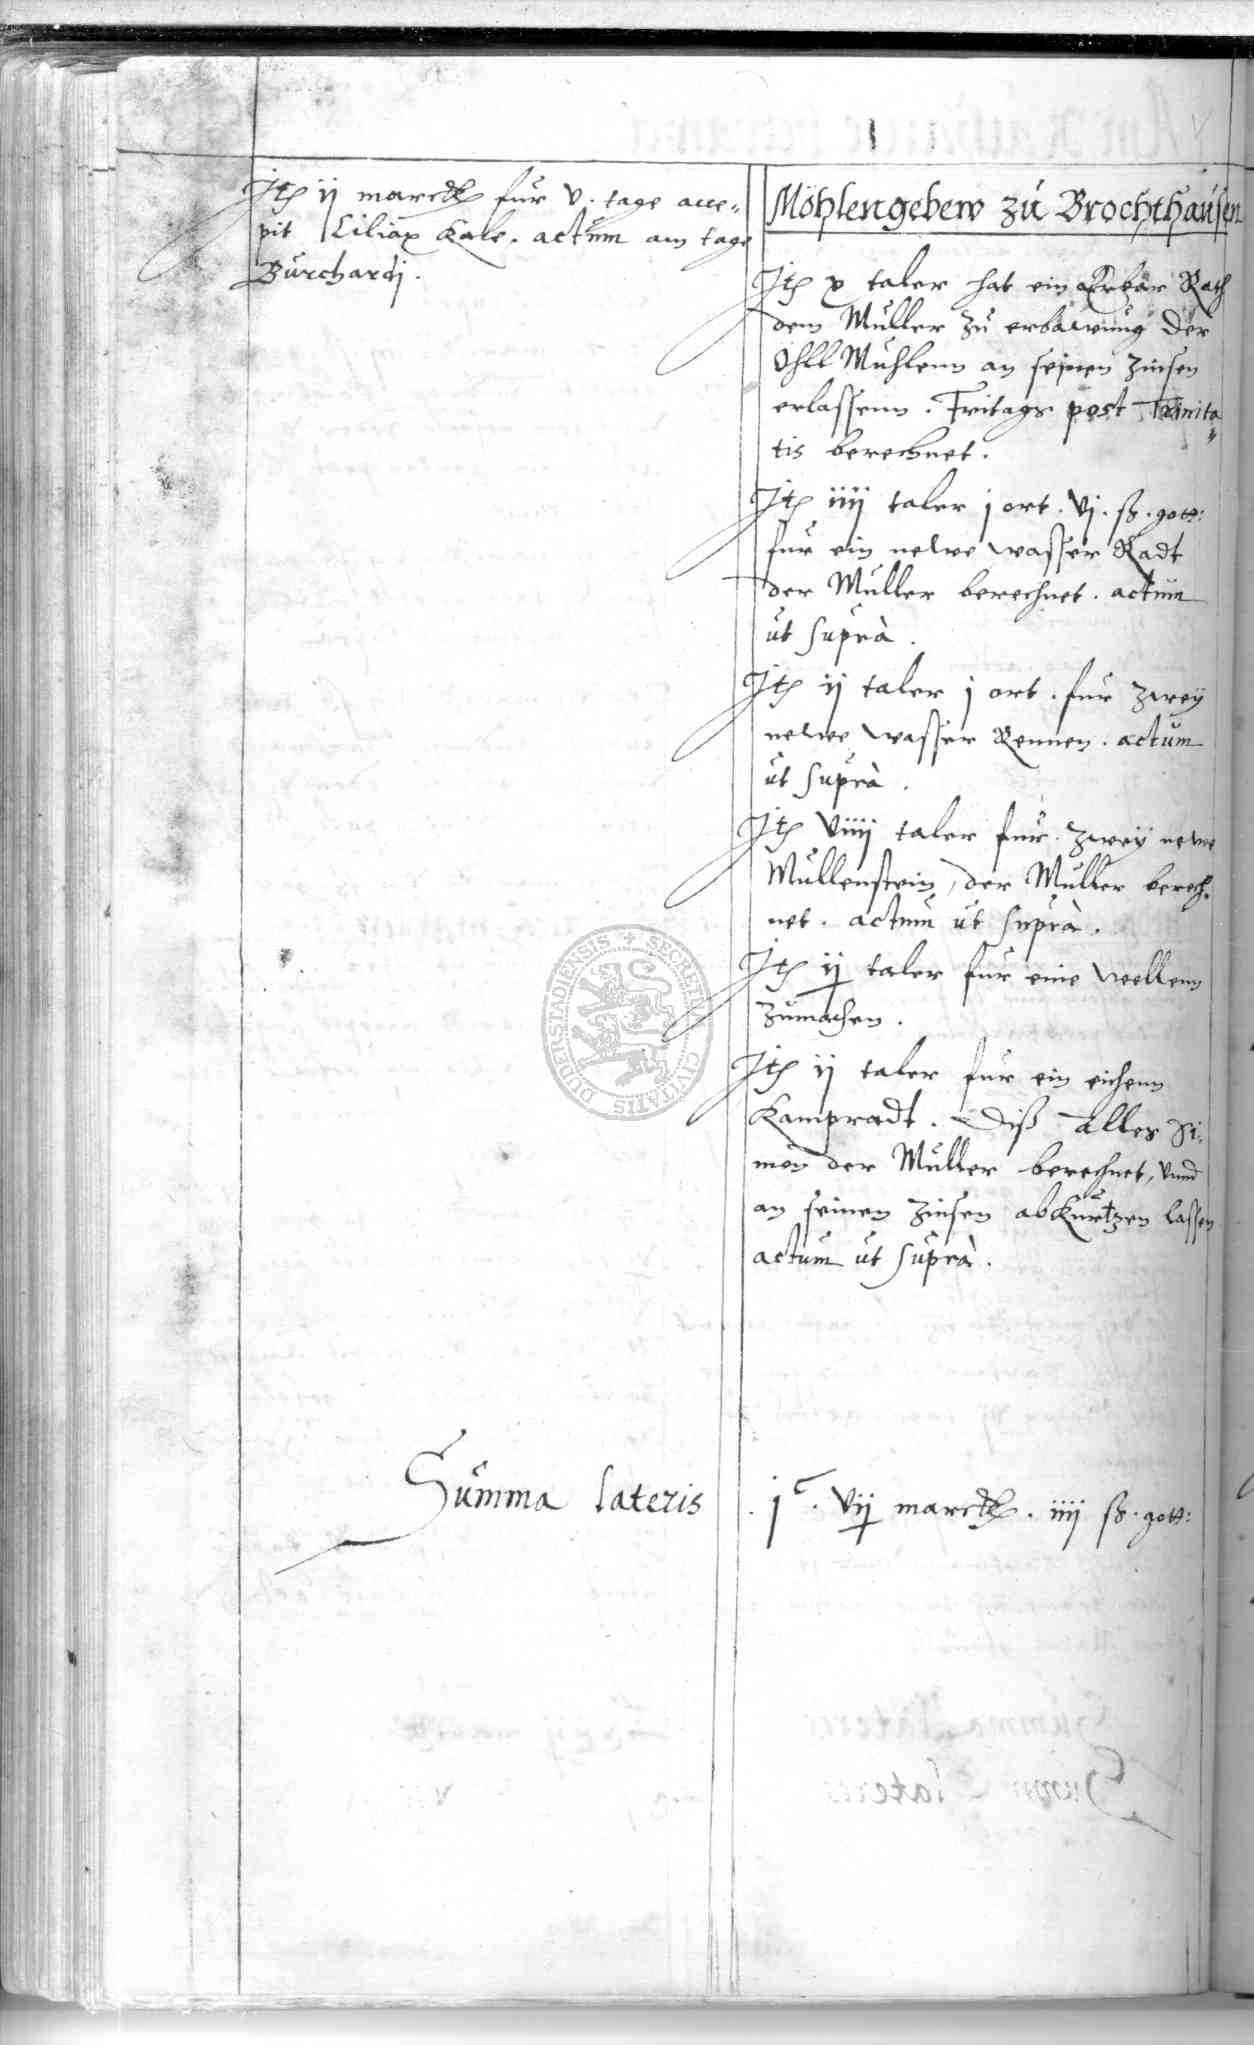 Jtem ij marck fur v. tage acce„
pit Ciliax Kale. actum am tage
Burchardj.
Möhlengebew zu Brochthausen
Jtem x taler hat ein Erbar Rath
dem Muller zu erbawung der
Öhll Muhlenn an seinen zinsen
erlassenn. Fritags post Trinita„
tis berechnet.
Jtem iiij taler j ort. vj. ß. gott:
fur ein newe wasser Radt
der Muller berechnet. actum
ut suprà.
Jtem ij taler j ort. fur zweÿ
newe wasser Rennen. actum
ut suprà.
Jtem viiij taler fur zweÿ newe
Mullenstein, der Muller berech„
net. actum ut suprà.
Jtem ij taler fur eine wellenn
zumachen.
Jtem ij taler fur ein eichenn
Kampradt. Diß alles Si„
mon der Muller berechnet, vnnd
an seinen zinsen abkurtzen lassen
actum ut suprà.
Summa lateris . jc. vij marck. iiij ß. gott:
SECRETUM CIVITATIS DUDERSTADIENSIS